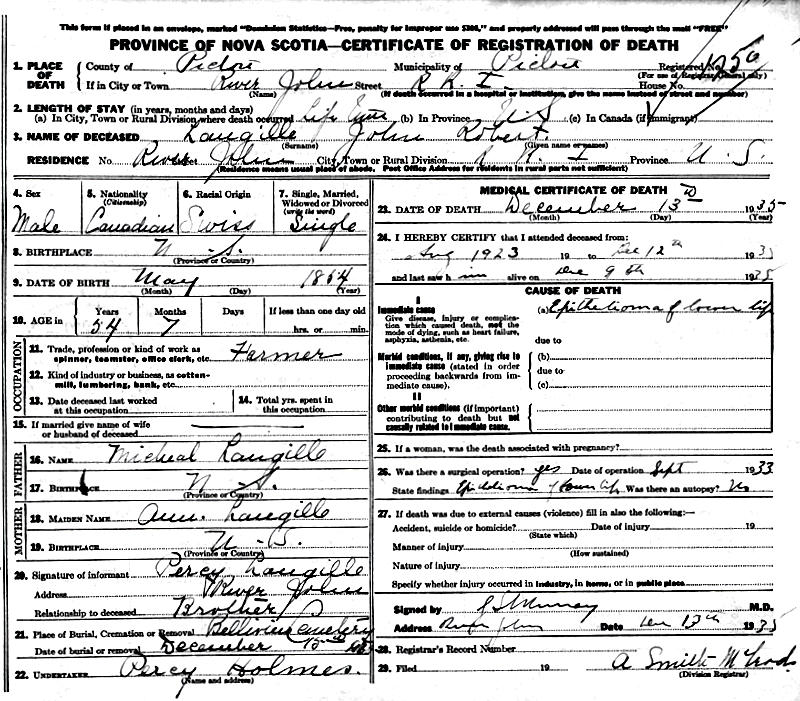 This form if placed in an envelope, marked "Dominion Statistics—Free, penalty for improper use $300," and properly addressed will pass through the mail "FREE"
PROVINCE OF NOVA SCOTIA—CERTIFICATE OF REGISTRATION OF DEATH
1. PLACE OF DEATH County of Pictou Municipality of Pictou Registered
(For use of Registrar General only)
If in City or Town River John Street R R 1 House No.
(Name) (If death occurred in a hospital or institution, give the name instead of street and number)
2. LENGTH OF STAY (in years, months and days)
(a) In City, Town or Rural Division where death occurred Life time (b) In Province N S (c) In Canada (if immigrant)
3. NAME OF DECEASED Langille John Robert
(Surname) (Given name or names)
RESIDENCE No. River John City, Town or Rural Division R R 1 Province N. S.
(Residence means usual place of abode. Post Office Address for residents in rural parts not sufficient)
4. Sex Male
5. Nationality (Citizenship) Canadian
6. Racial Origin Swiss
7. Single, Married, Widowed or Divorced (write the word) Single
8. BIRTHPLACE N. S.
(Province or Country)
9. DATE OF BIRTH May
(Month) (Day) (Year)
10. AGE in Years Months Days If less than one day old
54 7 hrs. or min.
OCCUPATION
11. Trade, profession or kind of work as spinner, teamster, office clerk, etc. Farmer
12. Kind of industry or business, as cotton-mill, lumbering, bank, etc.
13. Date deceased last worked at this occupation
14. Total yrs. spent in this occupation
15. If married give name of wife or husband of deceased
FATHER
16. NAME Micheal Langille
17. BIRTHPLACE N. S.
(Province or Country)
MOTHER
18. MAIDEN NAME Ann. Langille
19. BIRTHPLACE N. S.
(Province or Country)
20. Signature of informant Percy Langille
Address River John
Relationship to deceased Brother
21. Place of Burial, Cremation or Removal cemetery
Date of burial or removal December
22. UNDERTAKER Percy Holmes.
(Name and address)
MEDICAL CERTIFICATE OF DEATH
23. DATE OF DEATH December 13 1935
(Month) (Day) (Year)
24. I HEREBY CERTIFY that I attended deceased from:
Aug 1923 19 to Dec 12th 1935
and last saw h im alive on Dec 9th 1935
CAUSE OF DEATH
I
Immediate cause (a) Epithelioma of lower lip
Give disease, injury or complication which caused death, not the mode of dying, such as heart failure, asphyxia, asthenia, etc.
due to
Morbid conditions, if any, giving rise to immediate cause (stated in order proceeding backwards from immediate cause).
(b)
due to
(c)
II
Other morbid conditions (if important) contributing to death but not causally related to immediate cause.
25. If a woman, was the death associated with pregnancy?
26. Was there a surgical operation? yes Date of operation Sept 1933
State findings Epithelioma of lower lip Was there an autopsy? No
27. If death was due to external causes (violence) fill in also the following:—
Accident, suicide or homicide? Date of injury 19
(State which)
Manner of injury
(How sustained)
Nature of injury
Specify whether injury occurred in industry, in home, or in public place
Signed by M.D.
Address River John Date Dec 13th 1935
28. Registrar's Record Number
29. Filed 19 A Smith McLeod
(Division Registrar)